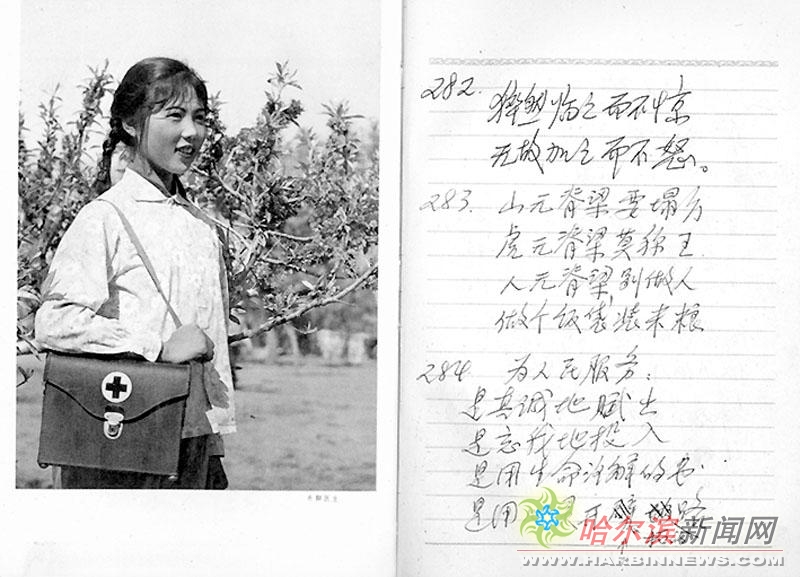 赤脚医生
282.
猝然临之而不惊
无故加之而不怒。
283. 山无脊梁要塌方
虎无脊梁莫称王.
人无脊梁别做人
做个饭袋装米粮
284. 为人民服务:
是真诚地赋出
是忘我地投入
是用生命注解的书
是用
哈尔滨新闻网
WWW.HARBINNEWS.COM